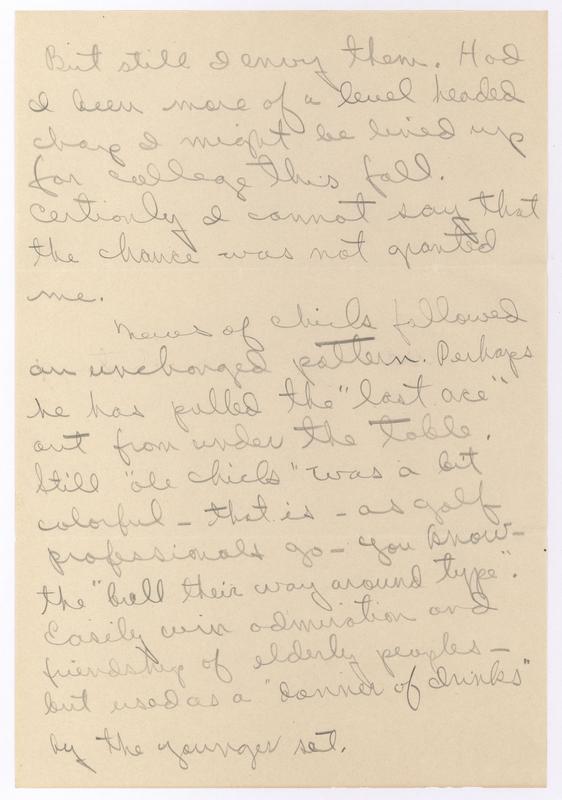 But still I envy them. Had
I been more of a level headed
chap I might be lined up
for college this fall.
Certionly I cannot say that
the chance was not granted
me.
News of chick's followed
an unchanged pattern. Perhaps
he has pulled the "last ace"
out from under the table.
Still "ole chick" was a bit
colorful - that is - as golf
professionals go - you know -
the "bull their way around type".
Easily win admiration and
friendship of elderly peoples -
but used as a " of drinks"
by the younger set.